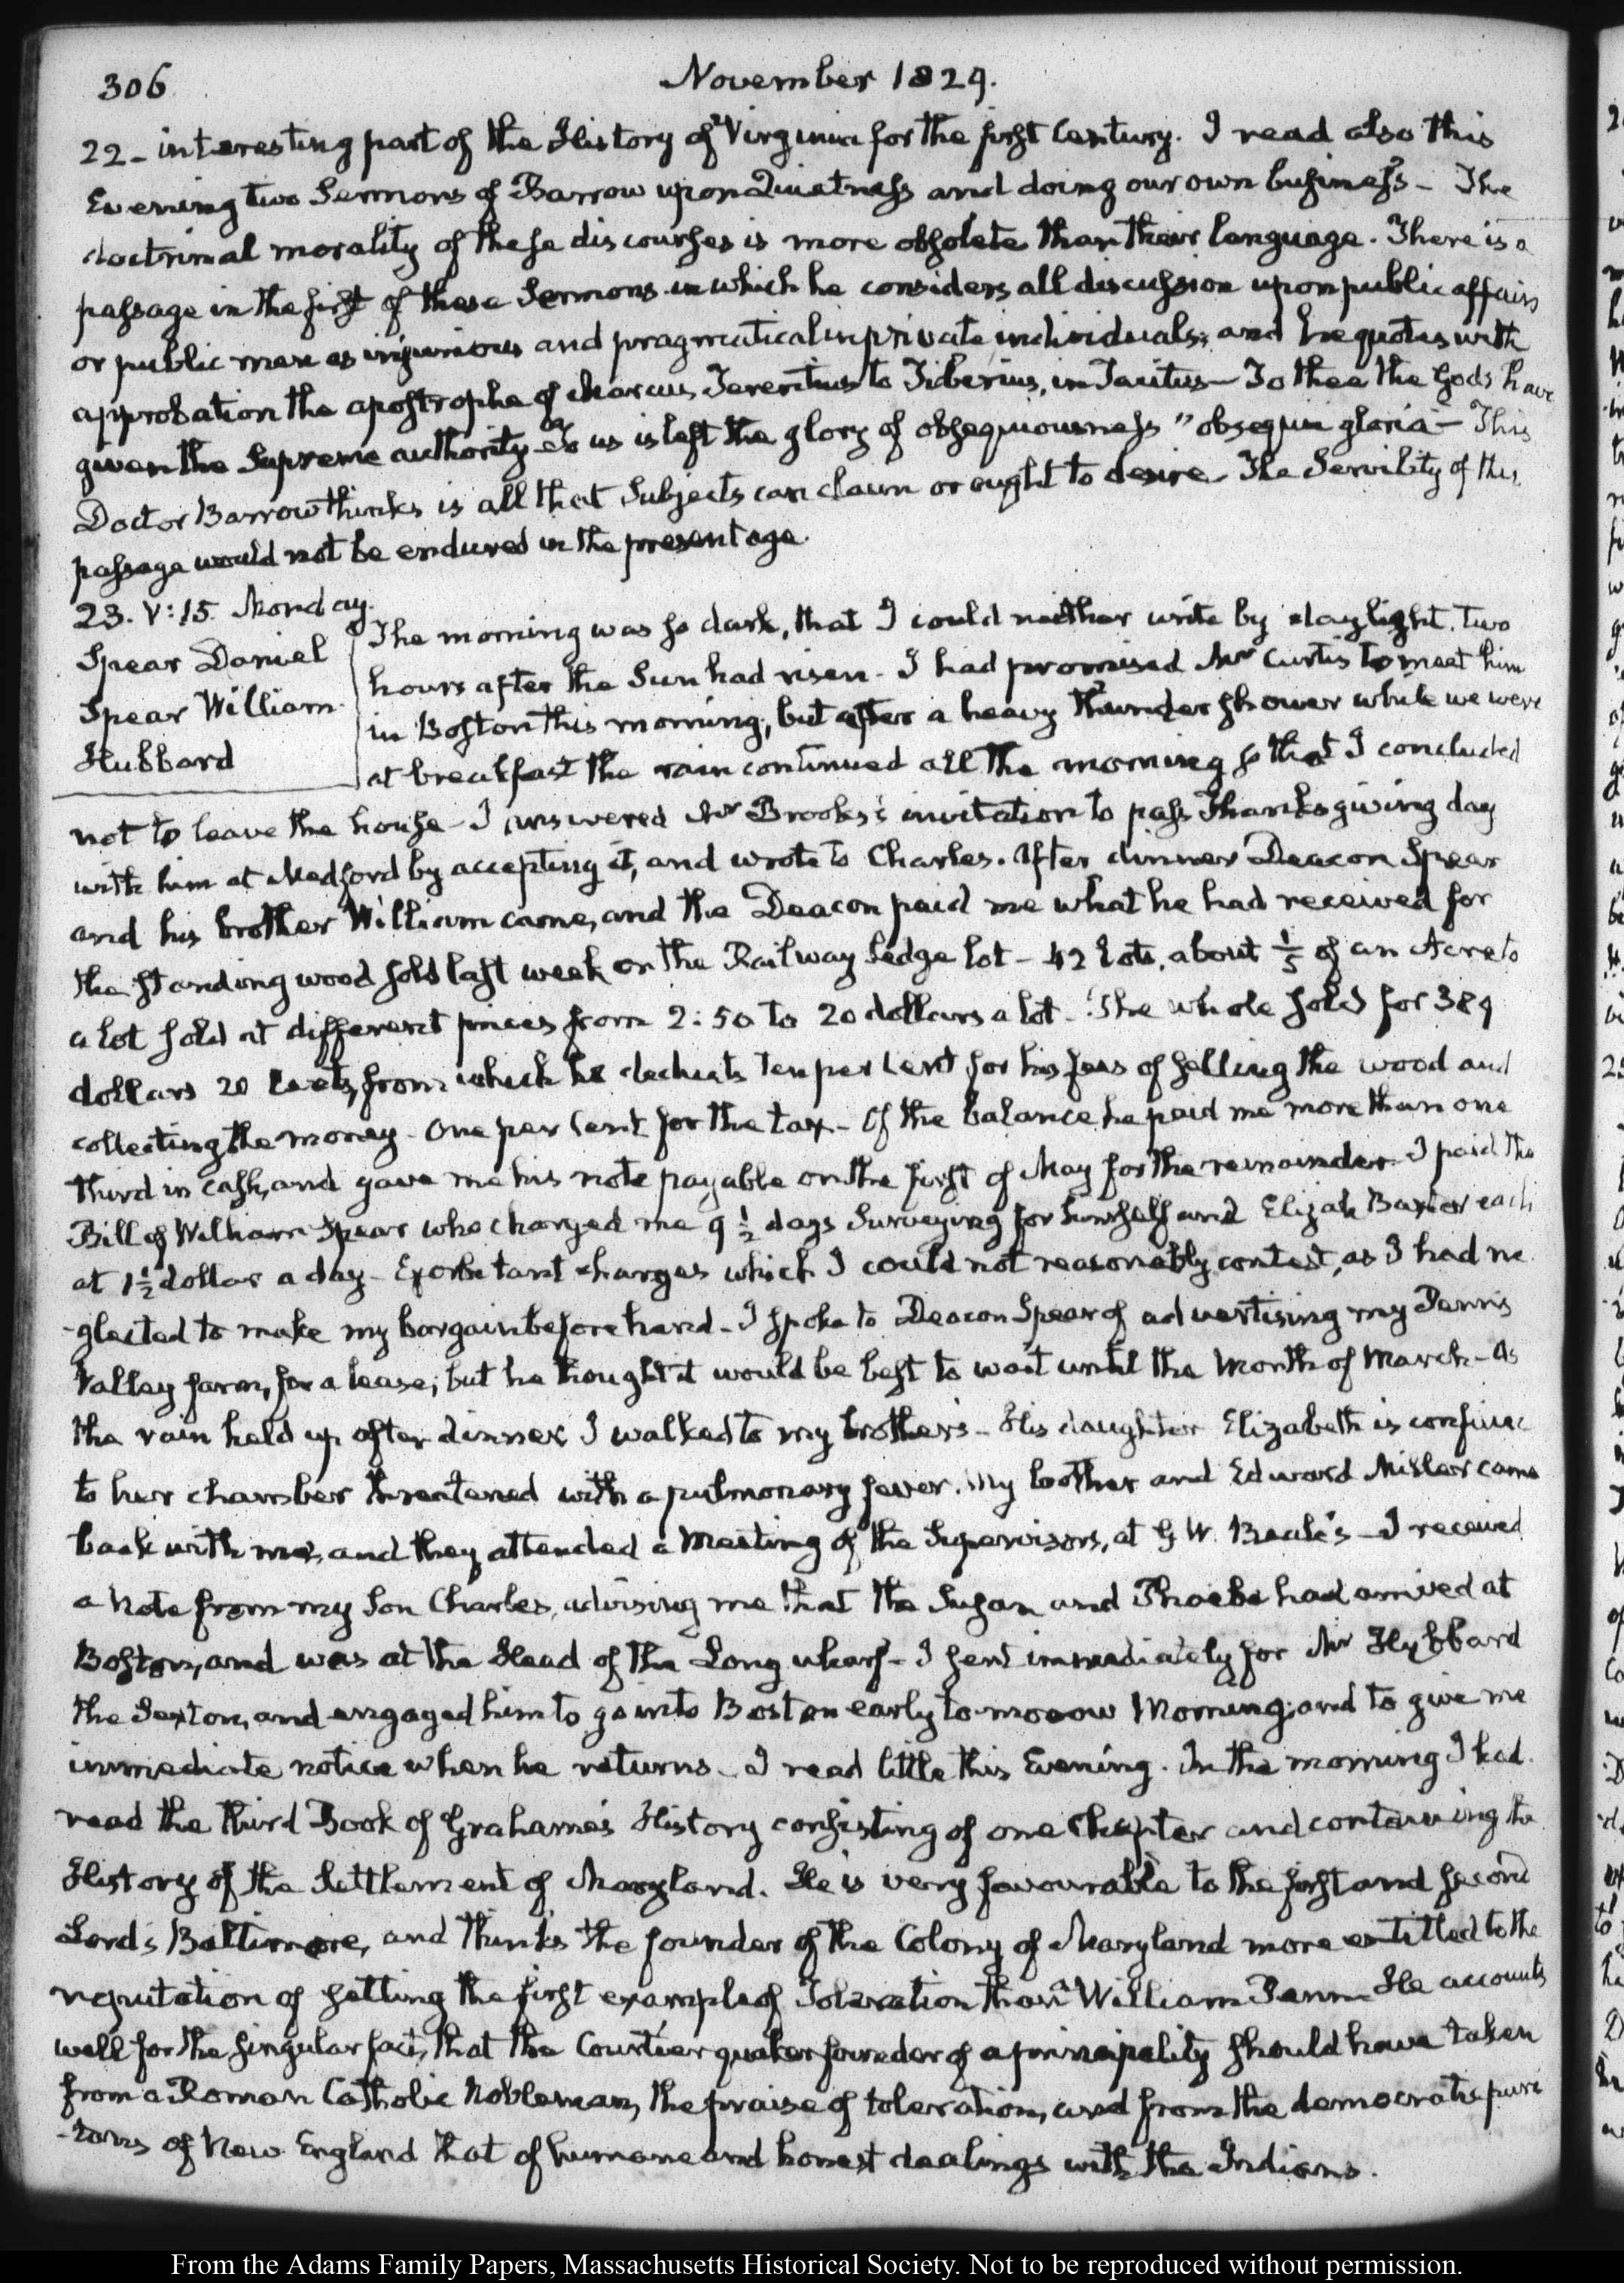 306
November 1829.
22 - interesting part of the History of Virginia for the first Century. I read also this
Evening two Sermons of Barrow upon Quietness and doing our own business - The
doctrinal morality of these discourses is more obsolete than their language. There is a
passage in the first of these Sermons in which he considers all discussion upon public affairs
or public men as injurious and pragmatical in private individuals; and he quotes with
approbation the apostrophe of Marcus Terentius to Tiberius, in Tacitus - To thee the Gods have
given the Supreme authority - To us is left the glory of obsequiousness "obsequii gloria" - This
Doctor Barrow thinks is all that Subjects can claim or ought to desire - The Servility of this
passage would not be endured in the present age.
23. V:15. Monday.
Spear Daniel
Spear William
Hubbard
The morning was so dark, that I could neither write by daylight, two
hours after the Sun had risen - I had promised Mr Curtis to meet him
in Boston this morning, but after a heavy thunder shower while we were
at breakfast the rain continued all the morning so that I concluded
not to leave the house - I answered Mr Brooks's invitation to pass Thanksgiving day
with him at Medford by accepting it, and wrote to Charles. After dinner Deacon Spear
and his brother William came, and the Deacon paid me what he had received for
the standing wood sold last week on the Railway Ledge lot - 42 lots, about 1/5 of an Acre to
a lot sold at different prices from 2:50 to 20 dollars a lot - The whole sold for 389
dollars 20 Cents, from which he deducts ten per Cent for his fees of selling the wood and
collecting the money - One per Cent for the tax - Of the balance he paid me more than one
third in cash, and gave me his note payable on the first of May for the remainder - I paid the
Bill of William Spear who charged me 9 1/2 days Surveying for himself and Elijah Baxter each
at 1 1/2 dollar a day - Exorbitant charges which I could not reasonably contest, as I had ne
-glected to make my bargain beforehand - I spoke to Deacon Spear of advertising my Penns
Valley farm, for a lease; but he thought it would be best to wait until the Month of March - As
the rain held up after dinner I walked to my brother's - His daughter Elizabeth is confined
to her chamber threatened with a pulmonary fever. My brother and Edward Miller came
back with me, and they attended a Meeting of the Supervisors, at G W. Beale's - I received
a Note from my Son Charles, advising me that the Susan and Phoebe had arrived at
Boston, and was at the Head of the Long wharf - I sent immediately for Mr Hubbard
the Sexton, and engaged him to go into Boston early to-morrow Morning; and to give me
immediate notice when he returns - I read little this Evening. In the morning I had
read the third Book of Grahame's History consisting of one Chapter and containing the
History of the Settlement of Maryland. He is very favourable to the first and second
Lords Baltimore, and thinks the founder of the Colony of Maryland more entitled to the
reputation of setting the first example of Toleration than William Penn - He accounts
well for the singular fact, that the Courtier quaker founder of a principality should have taken
from a Roman Catholic Nobleman, the praise of toleration, and from the democratic puri
-tans of New England that of humane and honest dealings with the Indians.
From the Adams Family Papers, Massachusetts Historical Society. Not to be reproduced without permission.